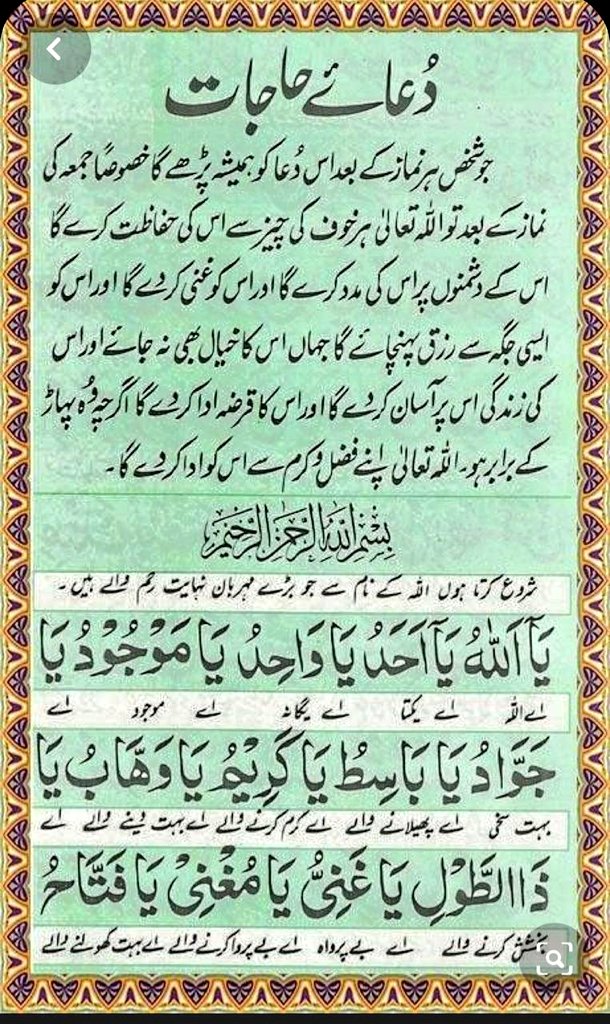 دُعائے حاجات
جو شخص ہر نماز کے بعد اس دُعا کو ہمیشہ پڑھے گا خصوصاً جمعہ کی
نماز کے بعد تو اللہ تعالیٰ ہر خوف کی چیز سے اس کی حفاظت کرے گا
اس کے دشمنوں پر اس کی مدد کرے گا اور اس کو غنی کر دے گا اور اس کو
ایسی جگہ سے رزق پہنچائے گا جہاں اس کا خیال بھی نہ جائے اور اس
کی زندگی اس پر آسان کر دے گا اور اس کا قرضہ ادا کر دے گا اگرچہ وُہ پہاڑ
کے برابر ہو۔ اللہ تعالیٰ اپنے فضل و کرم سے اس کو ادا کر دے گا۔
بِسْمِ اللهِ الرَّحْمٰنِ الرَّحِيْمِ
شروع کرتا ہوں اللہ کے نام سے جو بڑے مہربان نہایت رحم والے ہیں۔
يَآ اَللّٰهُ يَآ اَحَدُ يَا وَاحِدُ يَا مَوْجُوْدُ يَا
اے اللہ اے یکتا اے یگانہ اے موجود اے
جَوَّادُ يَا بَاسِطُ يَا كَرِيْمُ يَا وَهَّابُ يَا
بہت سخی اے پھیلانے والے اے کرم کرنے والے اے بہت دینے والے اے
ذَا الطَّوْلِ يَا غَنِيُّ يَا مُغْنِيْ يَا فَتَّاحُ
بخشش کرنے والے اے بے پرواہ اے بے پروا کرنے والے اے بہت کھولنے والے